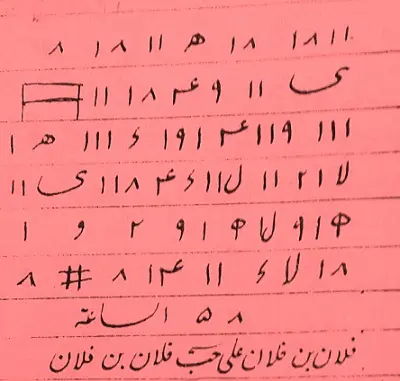 ١٨١١ ١٨ ھ ١١ ١٨ ٨
ى ١١ ٩ ۴ ١٨ ١١
١١١ ١١٩ ۴ ١٩١ ء ١١١ ھ ١
لا ٢١ ١١ ل ١١ ء ۴ ١١٨ ى ١١
١ ٩ لا ١ ٩ ٢ و ١
١٨ لا ء ١١ ١۴ ٨ # ٨
٨ ۵ الساعة
فلان بن فلان علی حب فلان بن فلان